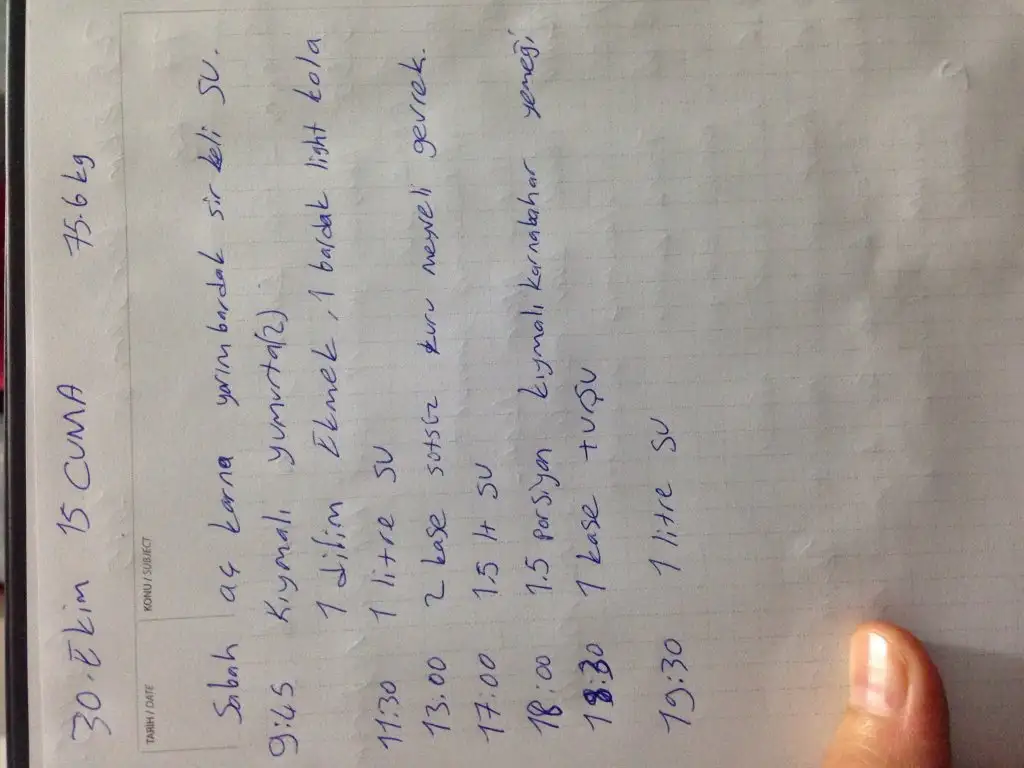 30. Ekim 15 CUMA 75.6 kg
TARİH / DATE KONU / SUBJECT
Sabah aç karna yarım bardak sirkeli su.
9:45 Kıymalı yumurta(2)
1 dilim Ekmek, 1 bardak light kola
11:30 1 litre su
13:00 2 kase sotsuz kuru meyveli gevrek.
17:00 1.5 lt su
18:00 1.5 porsiyon kıymalı karnabahar yemeği
18:30 1 kase turşu
19:30 1 litre su